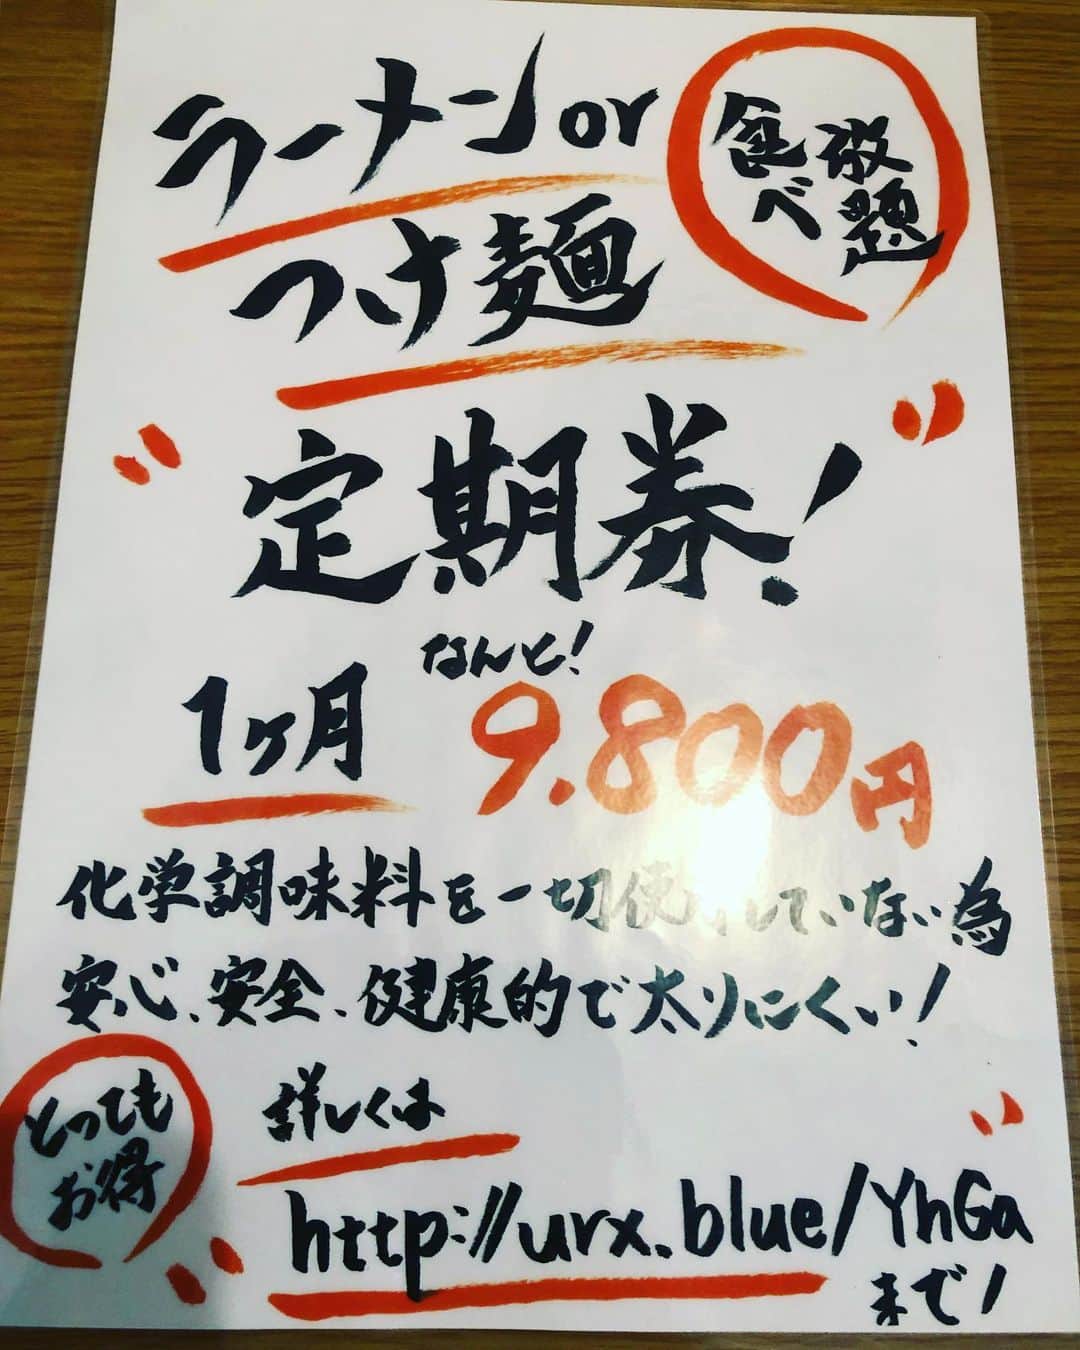 ラーメンor
つけ麺
食べ
放題
"定期券!"
なんと!
1ヶ月 9.800円
化学調味料を一切使用していない為
安心、安全、健康的で太りにくい!
とっても
お得
詳しくは
http://urx.blue/YhGa
まで!